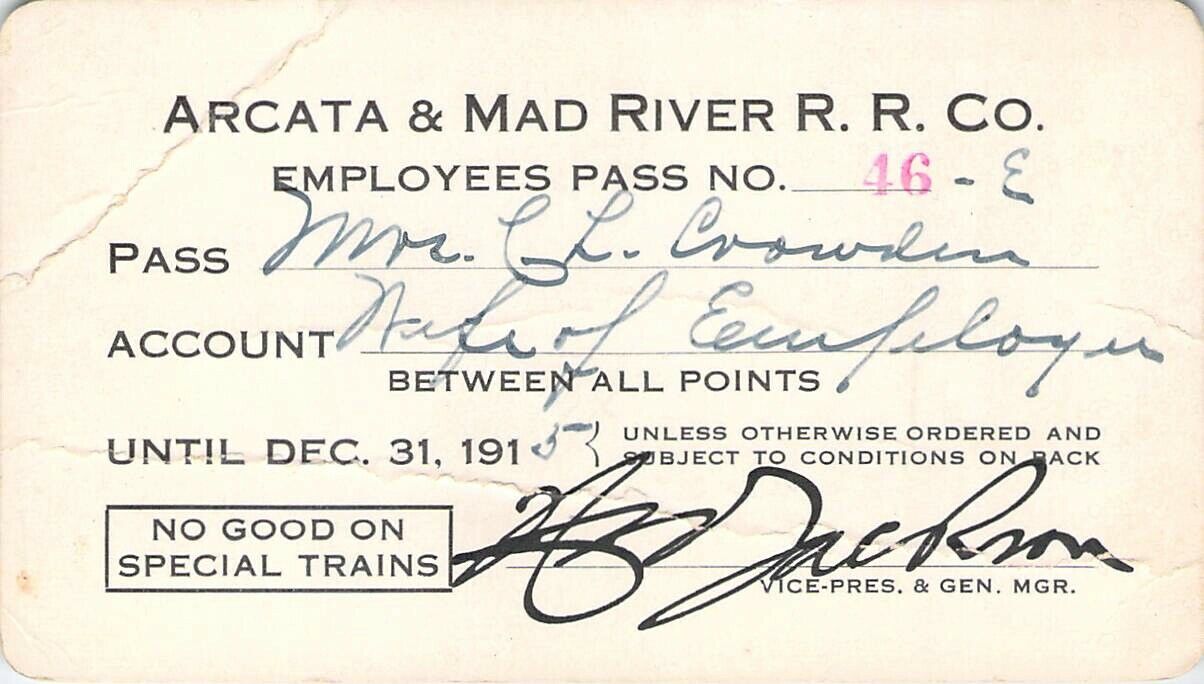 ARCATA & MAD RIVER R. R. CO.
EMPLOYEES PASS NO. 46 - E
PASS Mrs. C. L. Crowden
ACCOUNT Wife of Employee
BETWEEN ALL POINTS
UNTIL DEC. 31, 1915 } UNLESS OTHERWISE ORDERED AND
SUBJECT TO CONDITIONS ON BACK
NO GOOD ON
SPECIAL TRAINS
Jackson
VICE-PRES. & GEN. MGR.